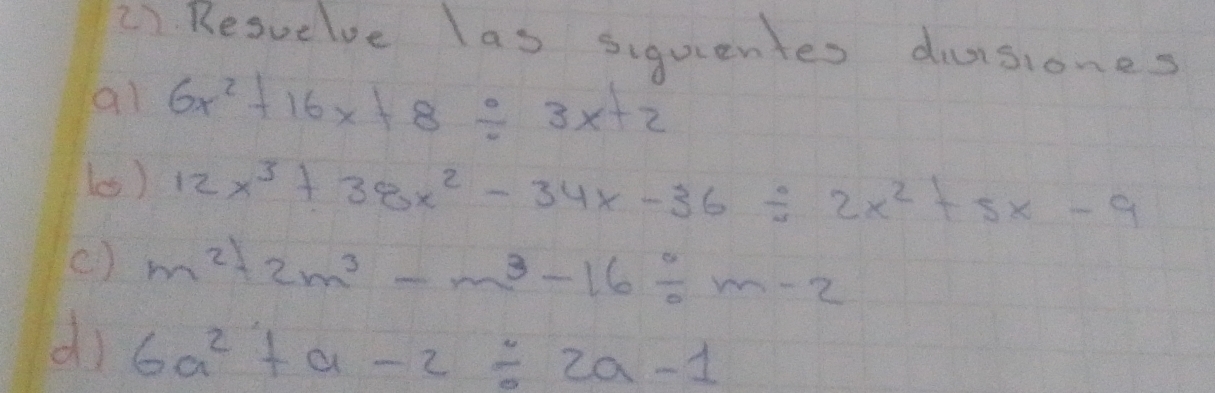 2) Resuelve las siguientes divisiones
a) 6x² + 16x + 8 ÷ 3x + 2
b) 12x³ + 38x² - 34x - 36 ÷ 2x² + 5x - 9
c) m² + 2m³ - m³ - 16 ÷ m - 2
d) 6a² + a - 2 ÷ 2a - 1